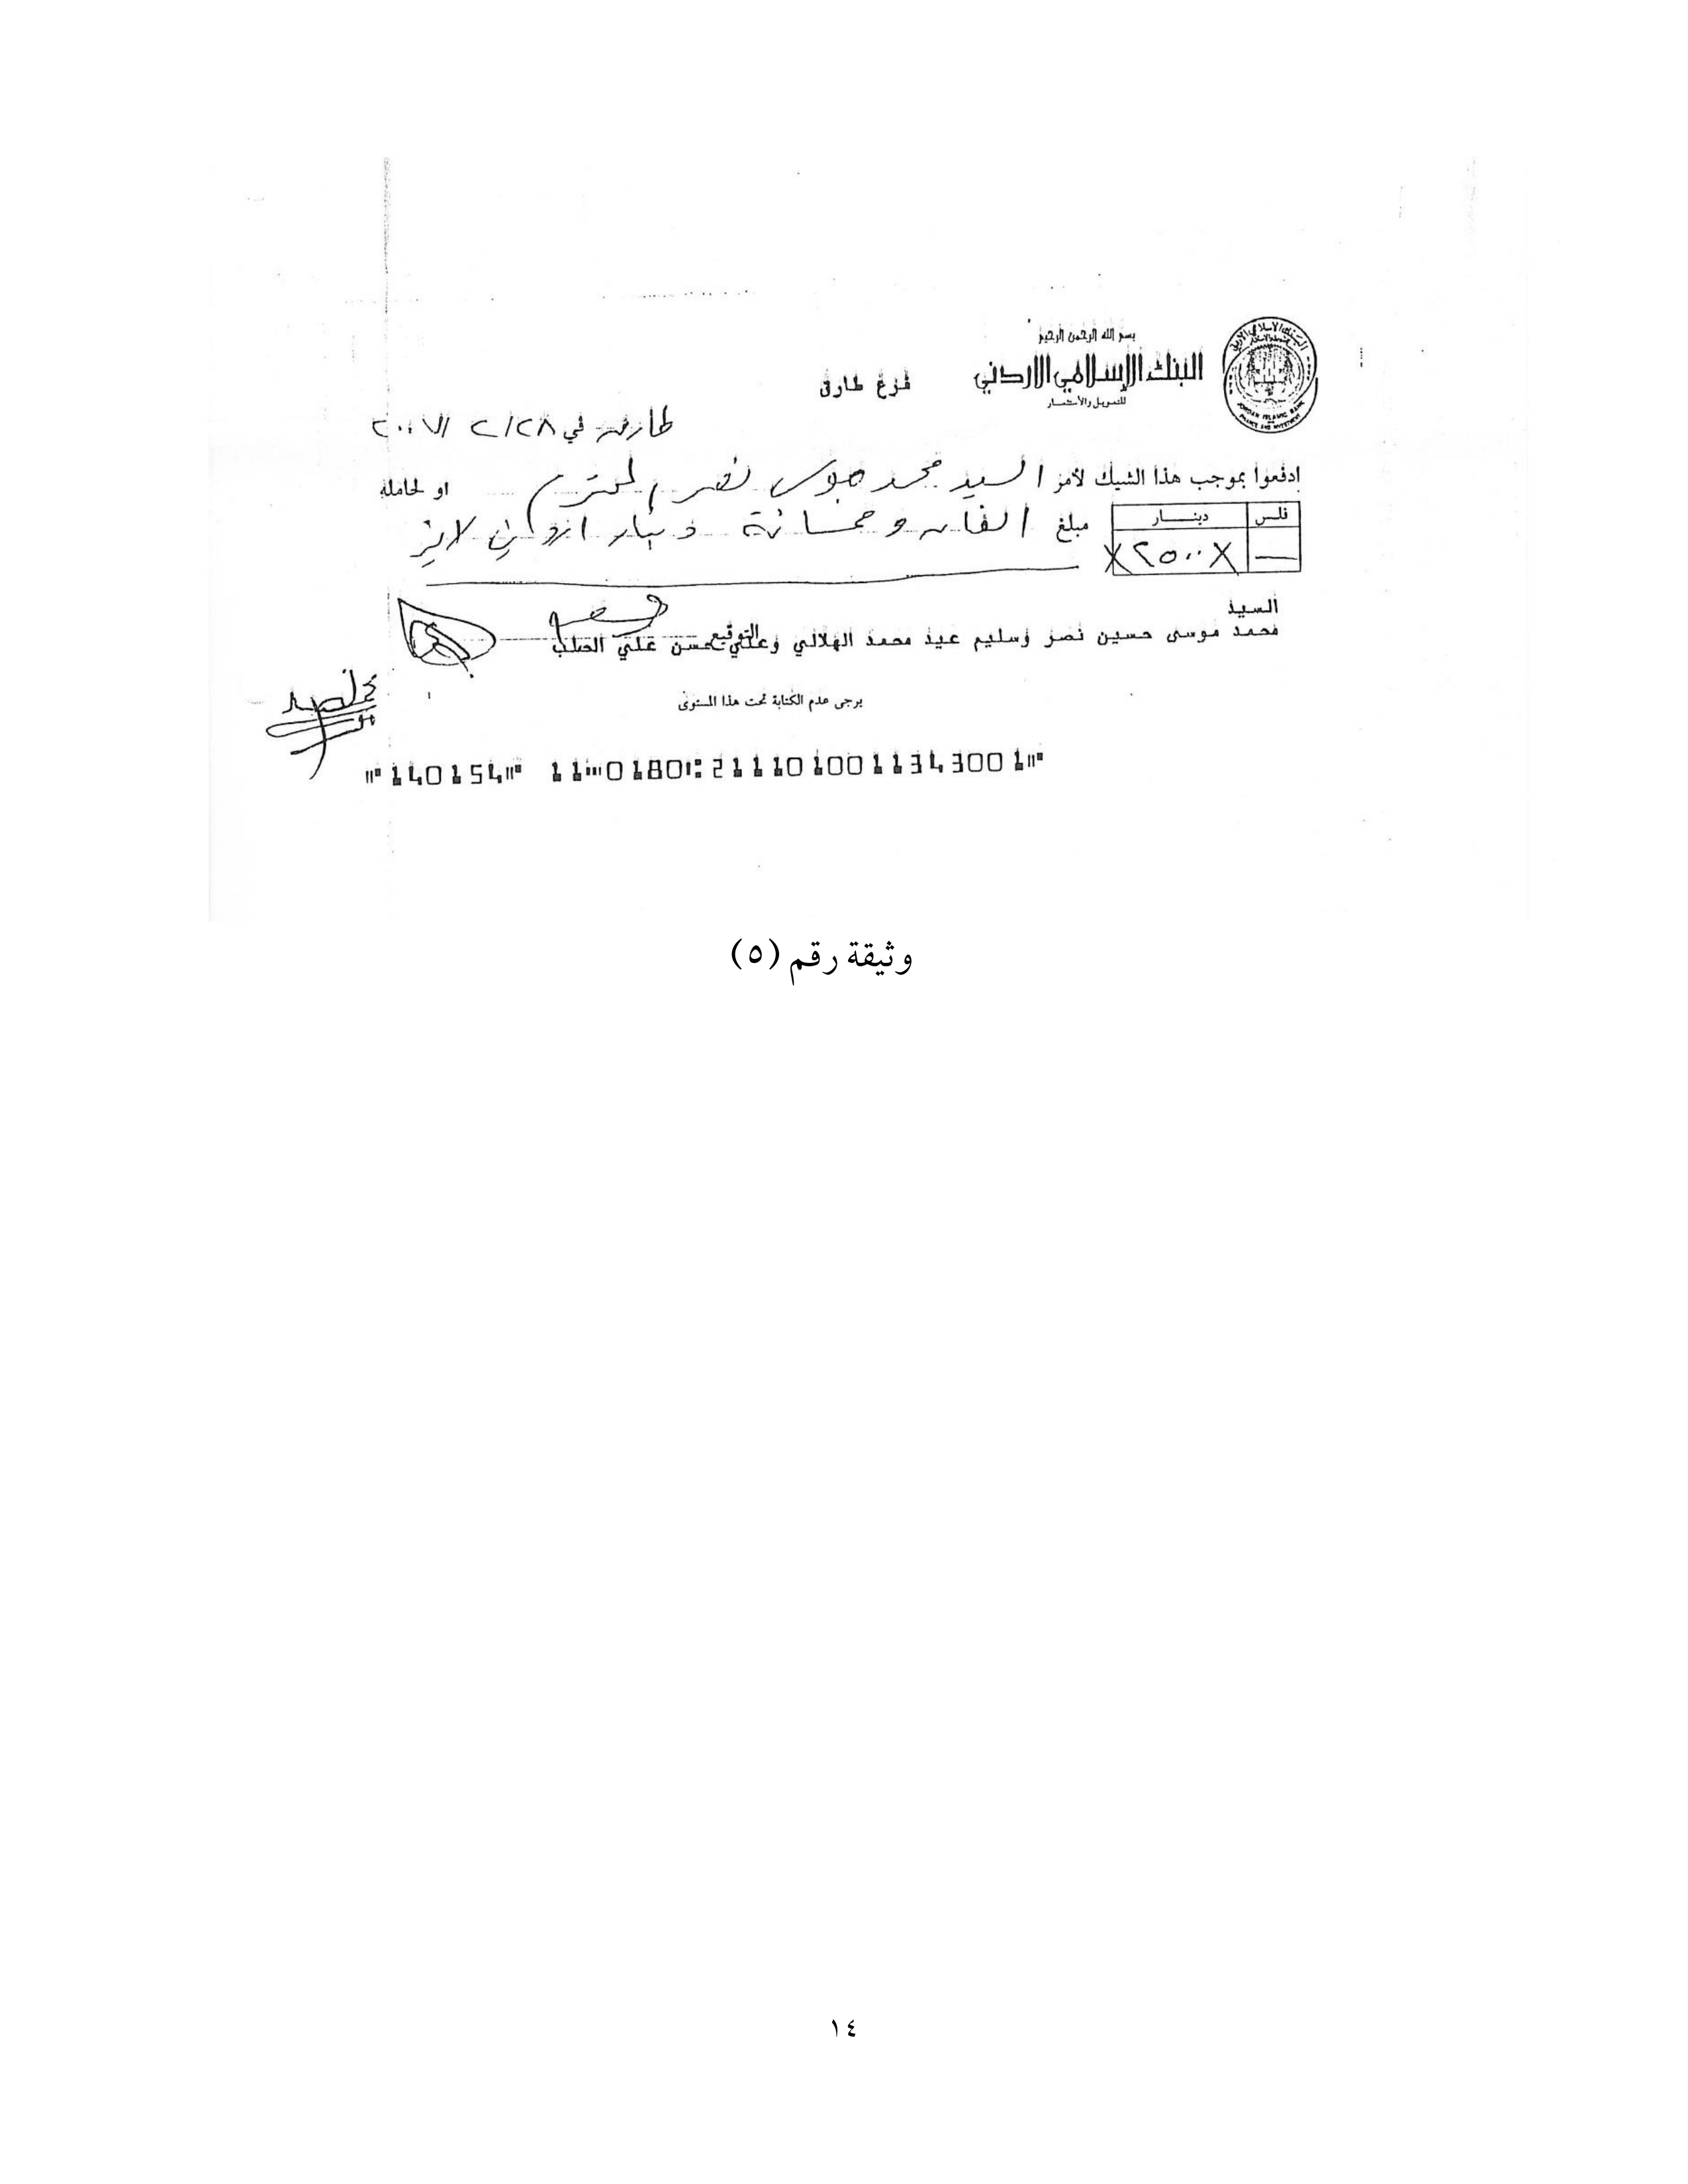 بسم الله الرحمن الرحيم
البنك الإسلامي الاردني
للتمويل والأستثمار
فرع طارق
طارق في ٢٨/٢/٢٠٠٧
إدفعوا بموجب هذا الشيك لأمر السيد محمد موسى نصر المحترم او لحامله
فلس دينار
مبلغ الفان وخمسائة دينار اردني لا غير
X٢٥٠٠X
السيد
محمد موسى حسين نصر وسليم عيد محمد الهلالي وعلي حسن علي الحلبي
التوقيع
يرجى عدم الكتابة تحت هذا المستوى
⑈140154⑈ 11⑉0180⑆2111010011343001⑈
وثيقة رقم (٥)
١٤